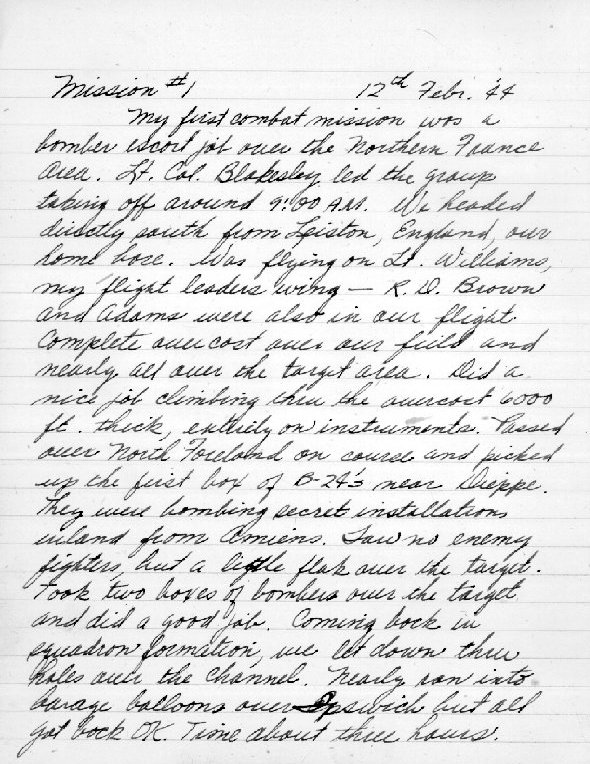 Mission #1 12th Febr. '44
My first combat mission was a
bomber escort job over the Northern France
area. Lt. Col. Blakesley led the group
taking off around 9:00 A.M. We headed
directly south from Leiston, England, our
home base. Was flying on Lt. Williams,
my flight leaders wing — R. D. Brown
and Adams were also in our flight.
Complete overcast over our field and
nearly all over the target area. Did a
nice job climbing thru the overcast 6000
ft. thick, entirely on instruments. Passed
over North Foreland on course and picked
up the first box of B-24's near Dieppe.
They were bombing secret installations
inland from Amiens. Saw no enemy
fighters, but a little flak over the target.
Took two boxes of bombers over the target
and did a good job. Coming back in
squadron formation, we let down thru
holes over the Channel. Nearly ran into
barage balloons over Ipswich but all
got back OK. Time about three hours.